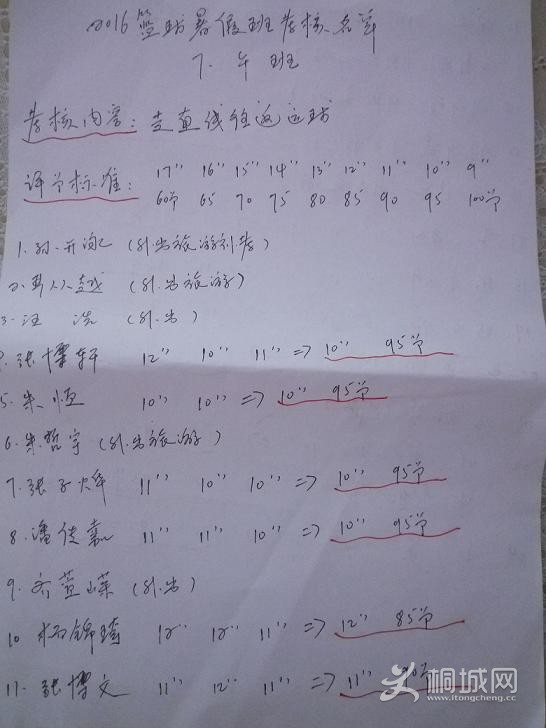 2016篮球暑假班考核名单
7. 午班
考核内容: 走直线往返运球
评分标准: 17" 16" 15" 14" 13" 12" 11" 10" 9"
60分 65 70 75 80 85 90 95 100分
1. 开 (外出旅游补考)
2. 越 (外出旅游)
3. 汪浩 (外出)
4. 张博轩 12" 10" 11" => 10" 95分
5. 朱恒 10" 10" => 10" 95分
6. 朱哲宇 (外出旅游)
7. 张子烨 11" 10" 10" => 10" 95分
8. 潘佳嘉 11" 11" 10" => 10" 95分
9. 齐萱 (外出)
10 锦琦 12" 12" 11" => 12" 85分
11. 张博文 11" 12" 11" => 11" 90分
桐城网
www.itongcheng.cc